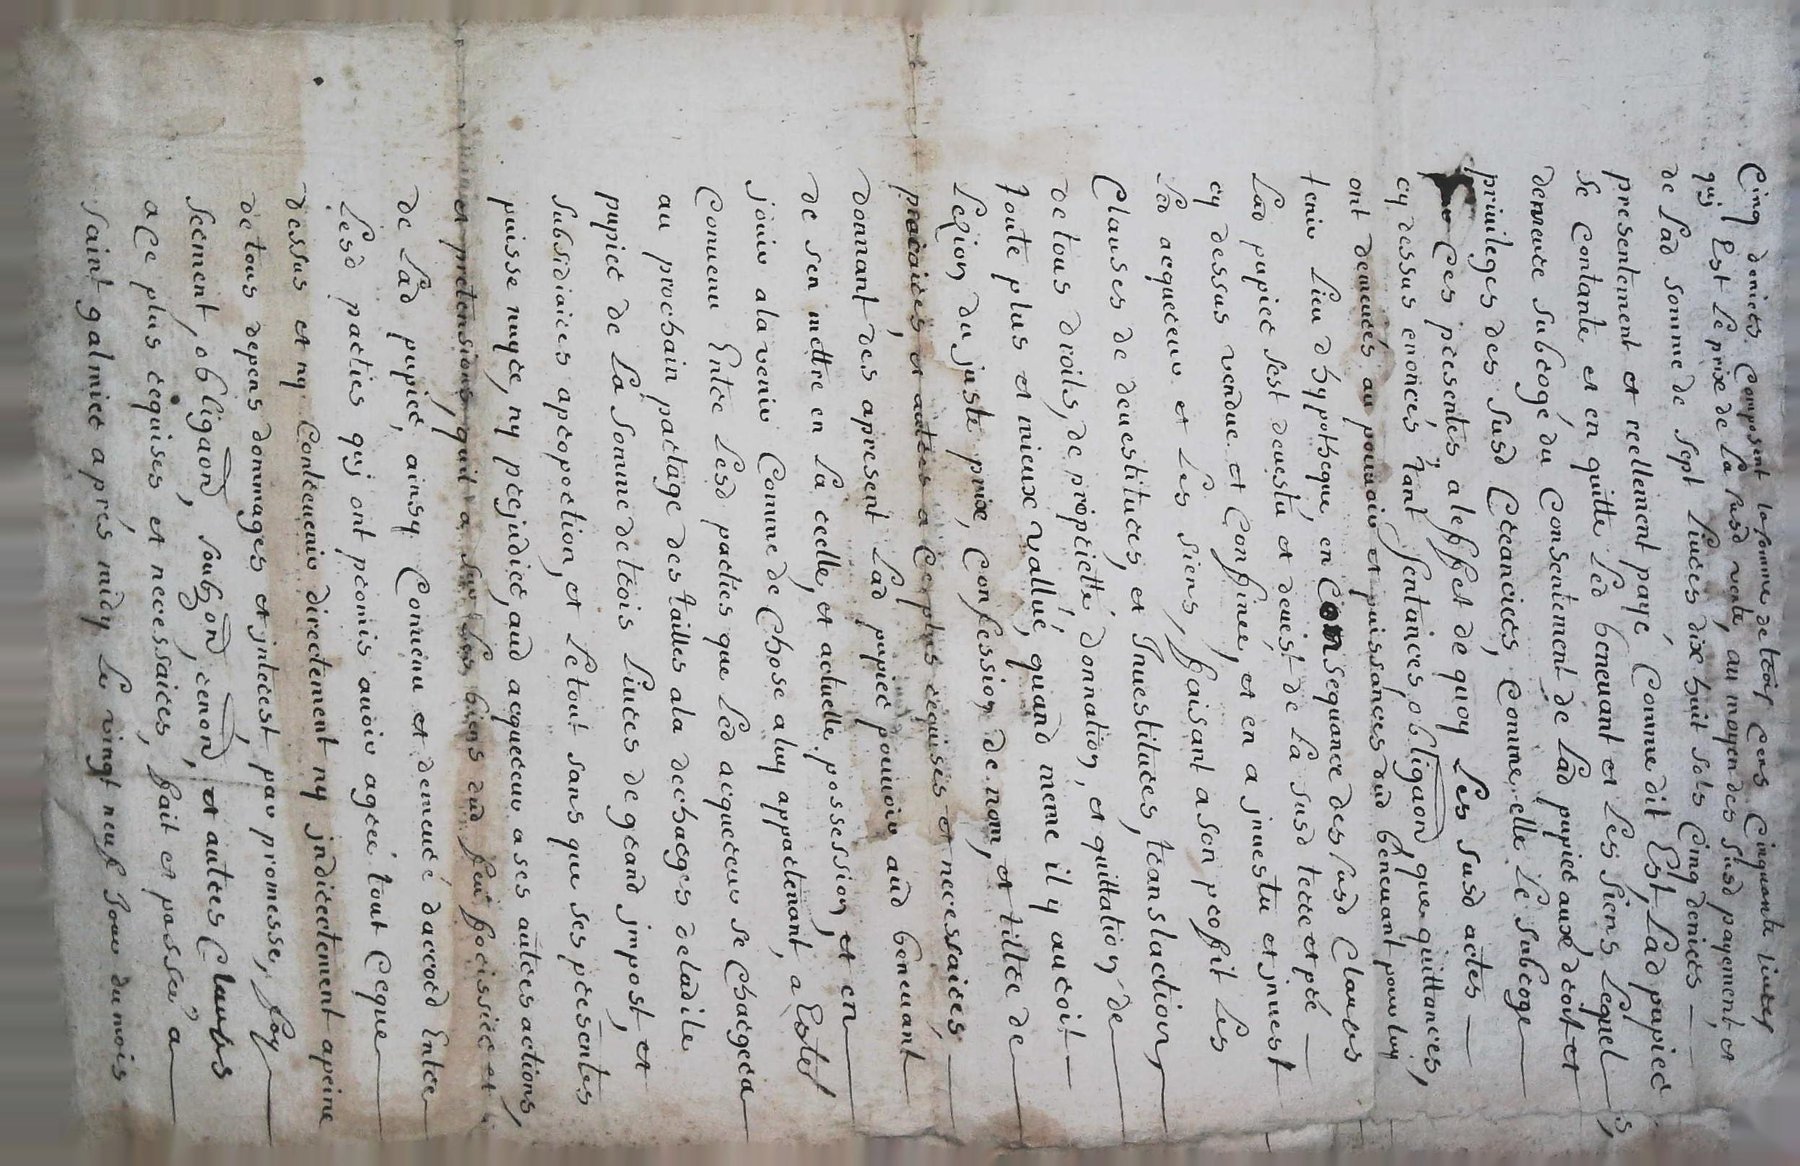 Cinq deniers Composent lasomme de trois Cens Cinquante livres
quj Est Le prix de La susd vente, au moyen des susd payement, et
de Lad somme de sept Livres dix huit sols Cinq deniers
presentement et reellement payé, Comme dit Est, Lad papier
se Contante et en quitte Led beneuant et Les siens, Lequel
demeure subrogé du Consentement de Lad papier aux droit et
priuileges des susd Creanciers, Comme elle Le subroge
par Ces presentes, a leffet de quoy Les susd actes
cy dessus enoncés tant sentances, obligaon, que quittances,
ont demeurés au pouuoir et puissances dud beneuant pour luy
tenir Lieu dhypotheque, en Consequance des susd Clauses
Lad papier sest deuestu et deuest de La susd terre et pré
cy dessus vendue et Confinee, et en a jnuestu et jnuest
Led acquereur et Les siens, faisant a son profit Les
Clauses de deuestitures, et Jnuestitures, translaction,
de tous droits, de proprietté donnation, et quittation de
toute plus et mieux vallué, quand meme il y auroit
Lezion du juste prix, Confession de nom, et tiltre de
precaires, et autres a Ce plus requises et necessaires,
donnant des apresent Lad papier pouuoir aud beneuant
de sen mettre en La reelle, et actuelle possession, et en
jouir alavenir Comme de Chose a luy appartenant, a Esté
Conuenu Entre Lesd parties que Led acquereur se Chargera
au prochain partage des tailles ala decharge deladite
papier de La somme de trois Liures de grand jmpost, et
subsidiaires aproportion, et Le tout sans que ses presentes
puisse nuyre, ny prejudicier, aud acquereur a ses autres actions,
et pretensions, quil a sur Les biens dud feu
de Lad papier, ainsy Conuenu et demeuré daccord Entre
Lesd parties quj ont promis auoir agréé tout Ceque
dessus et ny Contreuenir directement ny jndirectement apeine
de tous depens dommages et jnterest, par promesse, foy
serment, obligaon, soubzon, renon, et autres Clauses
a Ce plus requises et necessaires, fait et passé a
saint galmier apres midy Le vingt neuf Jour du mois